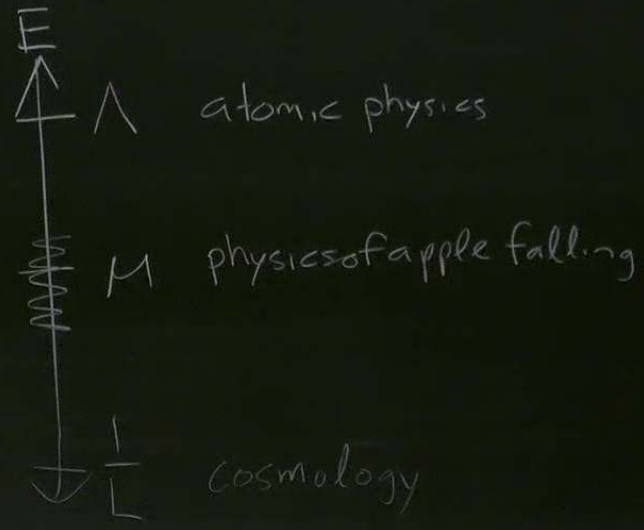 E
Λ atomic physics
M physics of apple falling
1/L cosmology